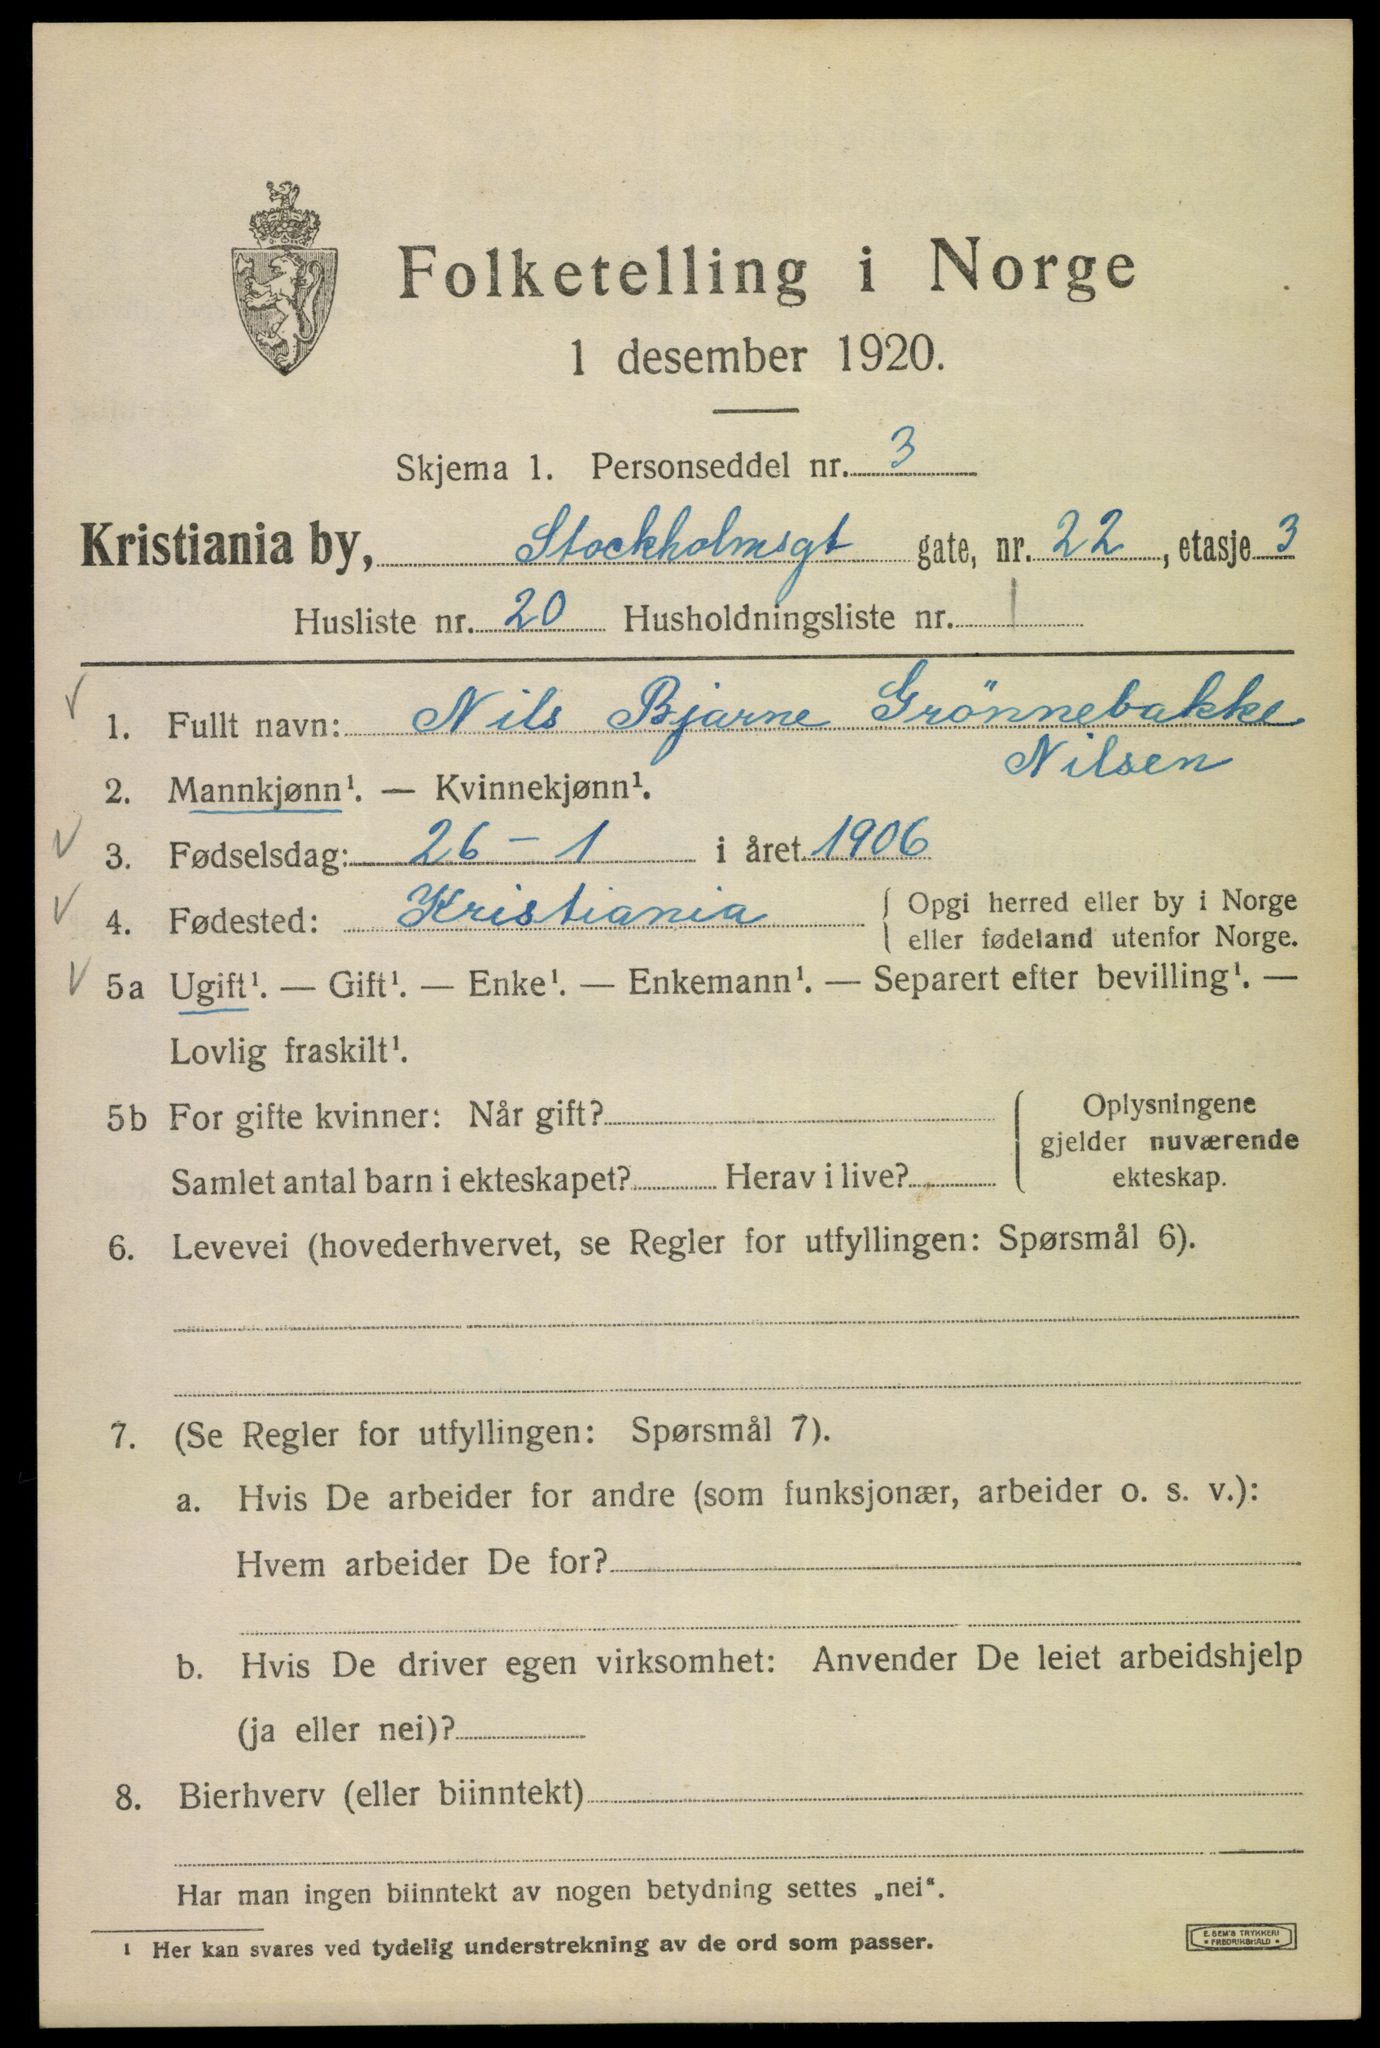 Folketelling i Norge
1 desember 1920.
Skjema 1. Personseddel nr. 3
Kristiania by, Stockholmsgt gate, nr. 22, etasje 3
Husliste nr. 20 Husholdningsliste nr. 1
1. Fullt navn: Nils Bjarne Grönnebakke
Nilsen
2. Mannkjønn¹. — Kvinnekjønn¹.
3. Fødselsdag: 26 – 1 i året 1906
4. Fødested: Kristiania { Opgi herred eller by i Norge
eller fødeland utenfor Norge.
5a Ugift¹. — Gift¹. — Enke¹. — Enkemann¹. — Separert efter bevilling¹. —
Lovlig fraskilt¹.
5b For gifte kvinner: Når gift? { Oplysningene
gjelder nuværende
Samlet antal barn i ekteskapet? Herav i live? ekteskap.
6. Levevei (hovederhvervet, se Regler for utfyllingen: Spørsmål 6).
7. (Se Regler for utfyllingen: Spørsmål 7).
a. Hvis De arbeider for andre (som funksjonær, arbeider o. s. v.):
Hvem arbeider De for?
b. Hvis De driver egen virksomhet: Anvender De leiet arbeidshjelp
(ja eller nei)?
8. Bierhverv (eller biinntekt)
Har man ingen biinntekt av nogen betydning settes „nei“.
¹ Her kan svares ved tydelig understrekning av de ord som passer.
E. SEM'S TRYKKERI
• FREDRIKSHALD •